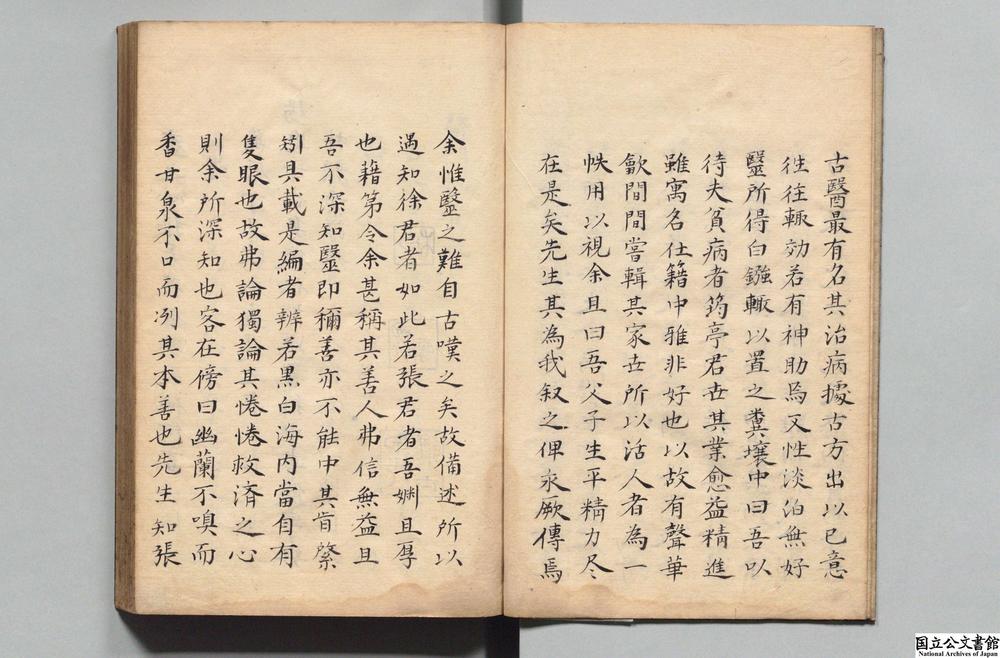 古醫最有名其治病據古方出以已意
徃徃輙効若有神助焉又性淡泊無好
醫所得白鏹輙以置之糞壤中曰吾以
待夫貧病者筠亭君世其業愈益精進
雖寓名仕籍中雅非好也以故有聲華
歙間間嘗輯其家世所以活人者為一
帙用以視余且曰吾父子生平精力尽
在是矣先生其為我叙之俾永厥傳焉
余惟毉之難自古嘆之矣故備述所以
遇知徐君者如此若張君者吾婣且厚
也藉第令余甚稱其善人弗信無益且
吾不深知毉即稱善亦不能中其肯綮
矧具載是編者辨若黒白海内當自有
隻眼也故弗論獨論其惓惓救済之心
則余所深知也客在傍曰幽蘭不嗅而
香甘泉不口而冽其本善也先生知張
国立公文書館
National Archives of Japan